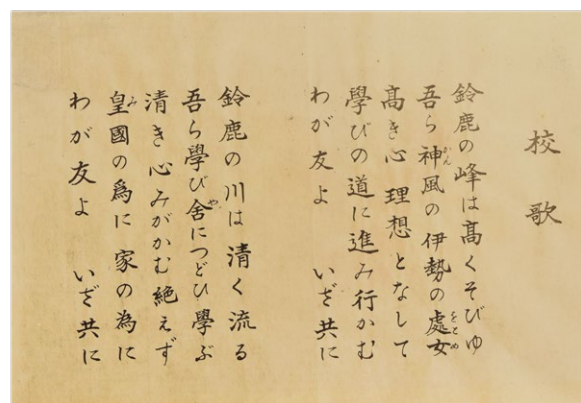 校歌
鈴鹿の峰は高くそびゆ
吾ら神風の伊勢の處女
高き心理想となして
學びの道に進み行かむ
わが友よ いざ共に
鈴鹿の川は清く流る
吾ら學び舎につどひ學ぶ
清き心みがかむ絶えず
皇國の爲に家の為に
わが友よ いざ共に